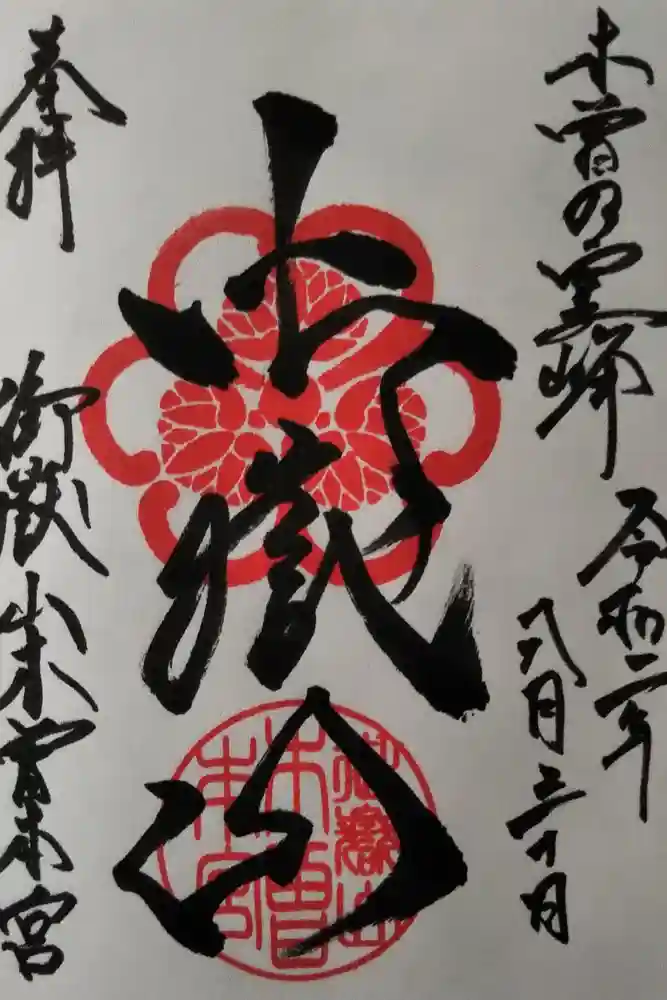 木曽の霊峰
令和二年
八月三十日
御嶽山
奉拝
御嶽山木曽本宮
御嶽山
木曽
本宮